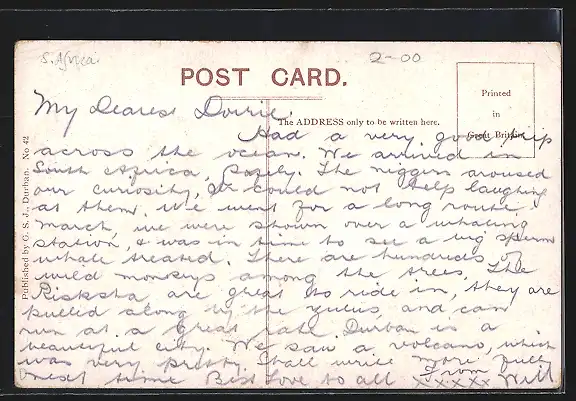 S. Africa.
2-00
POST CARD.
Printed
in
Great Britain
The ADDRESS only to be written here.
Published by G. S. J., Durban. No 42
My Dearest Dorrie.
Had a very good trip
across the ocean. We arrived in
South Africa, safely. The niggers aroused
our curiosity, We could not help laughing
at them. We went for a long route
march, we were shown over a whaling
station, & was in time to see a big sperm
whale treated. There are hundreds of
wild monkeys among the trees, The
Risksha are great to ride in, they are
pulled along by the zulus, and can
run at a great rate. Durban is a
beautiful city. We saw a volcano, which
was very pretty. Shall write more fully
next time Best Love to all From Will
xxxxx